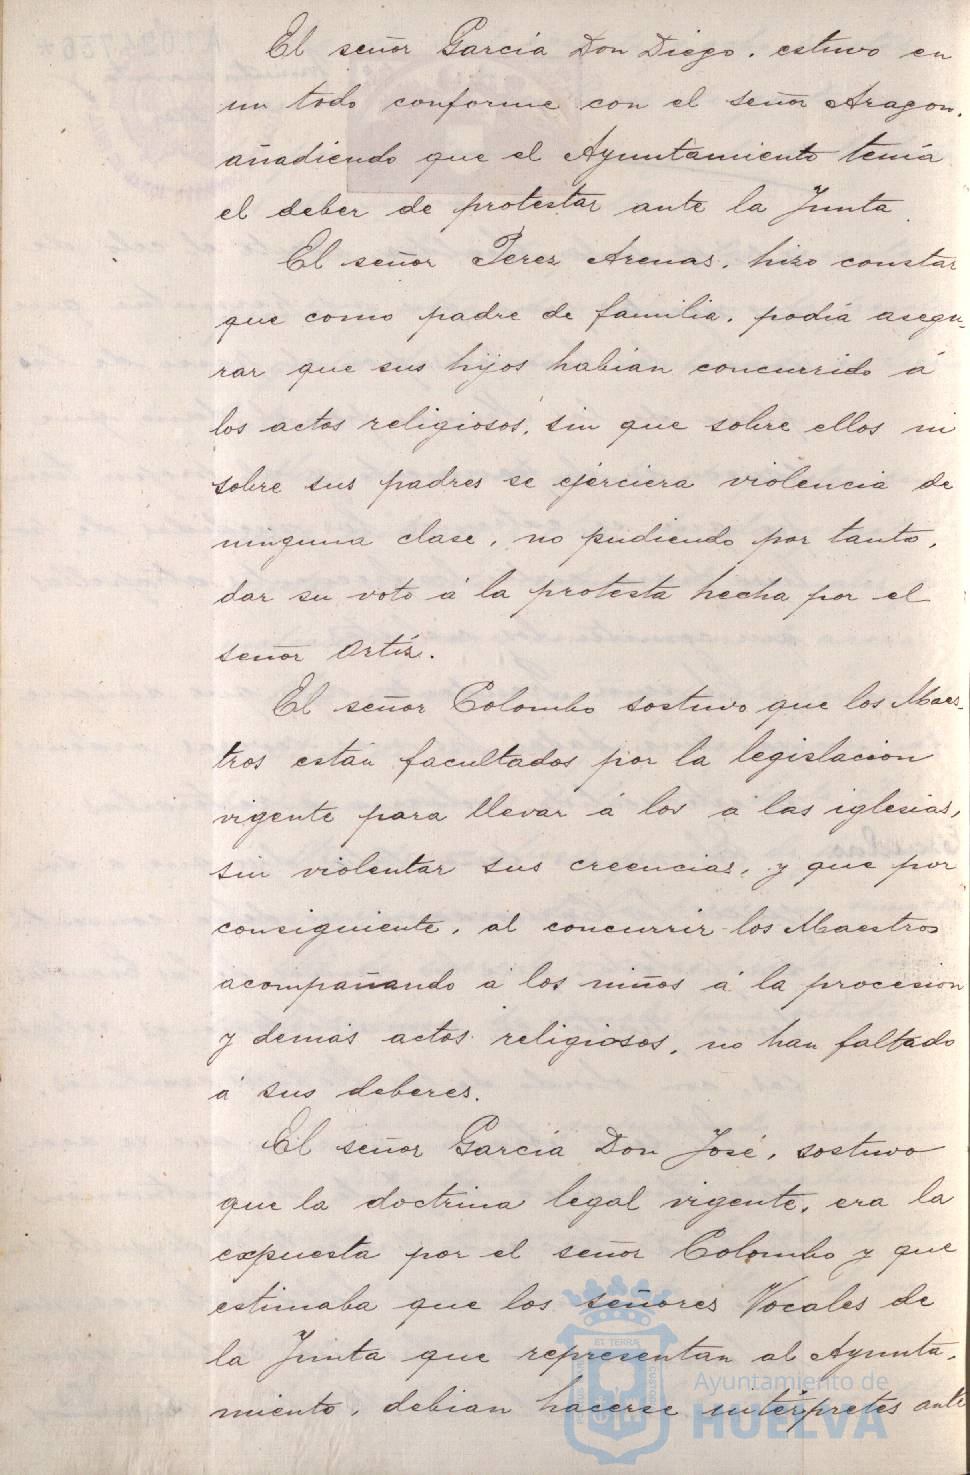 El señor García Don Diego, estuvo en
un todo conforme con el señor Aragon,
añadiendo que el Ayuntamiento tenía
el deber de protestar ante la Junta.
El señor Perez Arenas, hizo constar
que como padre de familia, podía asegu-
rar que sus hijos habían concurrido á
los actos religiosos, sin que sobre ellos ni
sobre sus padres se ejerciera violencia de
ninguna clase, no pudiendo por tanto,
dar su voto á la protesta hecha por el
señor Ortíz.
El señor Colombo sostuvo que los Maes-
tros están facultados por la legislacion
vigente para llevar á los á las iglesias,
sin violentar sus creencias, y que por
consiguiente, al concurrir los Maestros
acompañando á los niños á la procesion
y demás actos religiosos, no han faltado
á sus deberes.
El señor García Don José, sostuvo
que la doctrina legal vigente, era la
expuesta por el señor Colombo y que
estimaba que los señores Vocales de
la Junta que representan al Ayunta-
miento, debian hacerse intérpretes ante
Ayuntamiento de
HUELVA